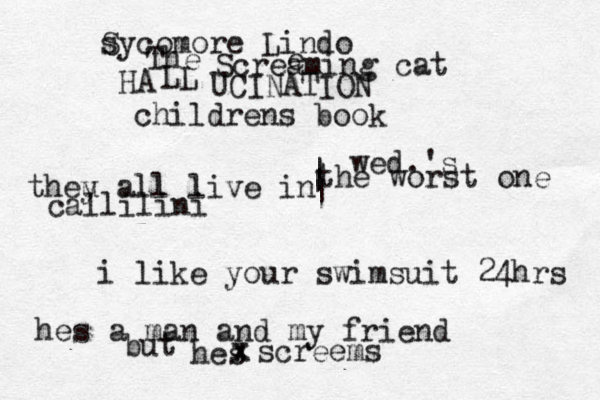 Sycomore Lindo
The Screeming cat
HALLUCINATION
childrens book
wed.'s
they all live in the worst one
callilini
i like your swimsuit 24hrs
hes a man and my friend
but hes screems